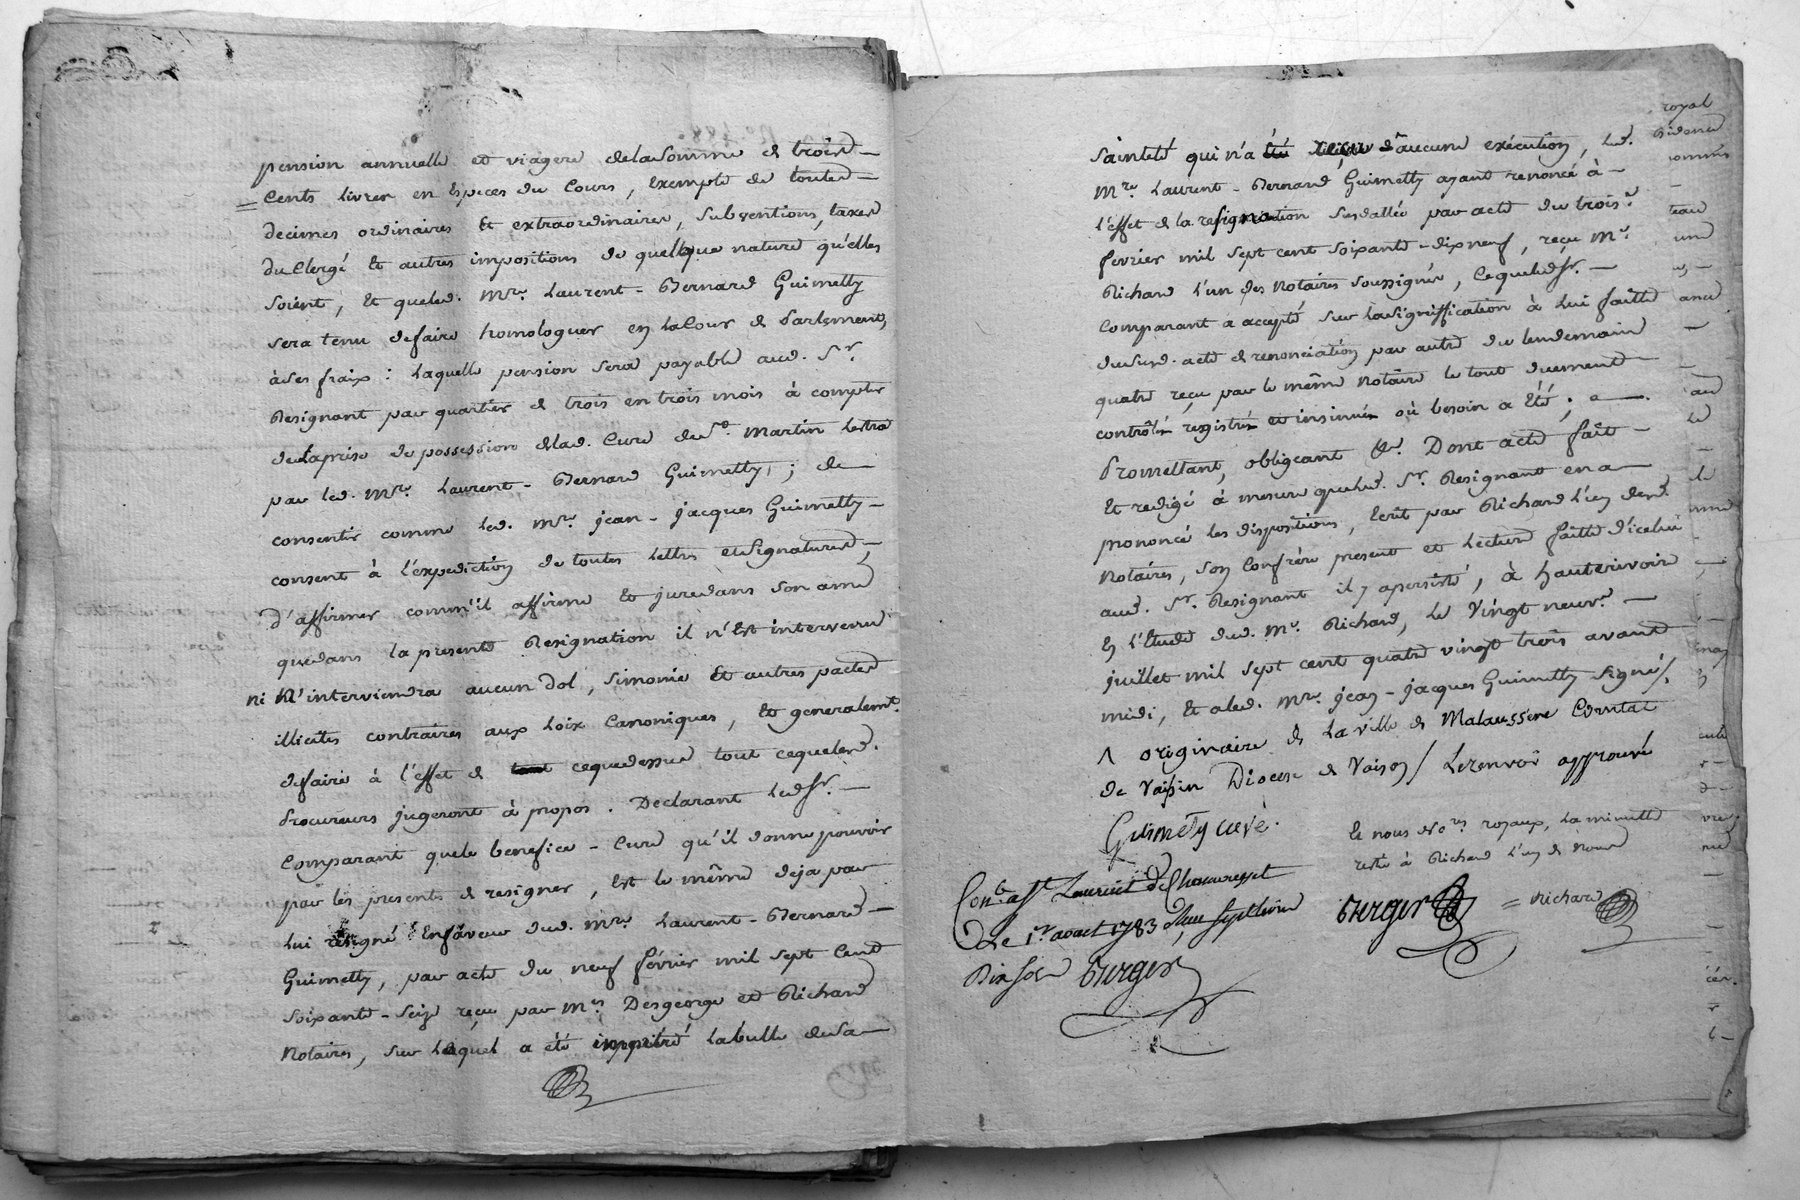 pension annuelle et viagere delasomme de trois
cents livres en Especes du Cours, Exempte de toutes
decimes ordinaires Et extraordinaires, subventions, taxes
du Clergé Et autres impositions de quelque nature qu'elles
soient, Et queled. Mre. Laurent-Bernard Guimetty
sera tenu defaire homologuer en laCour de Parlement,
àses fraix : laquelle pension sera payable aud. Sr.
Resignant par quartier de trois en trois mois à compter
delaprise de possession delad. Cure de St. Martin
par led. Mre. Laurent-Bernard Guimetty ; de
consentir comme led. Mre. jean-jacques Guimetty
consent à l'expediction de toutes Lettres etsignatures,
d'affirmer comm'il affirme Et juredans son ame
quedans la presente Resignation il n'Est intervenu
ni N'interviendra aucun dol, simonie Et autres pactes
illicites contraires aux Loix Canoniques, Et generalemt.
defaire à l'effet de cequedessus tout cequelesd.
Procureurs jugeront à propos. Declarant ledsr.
Comparant quele benefice-Cure qu'il donne pouvoir
par les presentes de resigner, Est le même deja par
Lui resigné Enfaveur dud. Mre. Laurent-Bernard
Guimetty, par acte du neuf fevrier mil sept Cent
soixante-seize reçu par Mes. Desgeorge et Richard
Notaires, sur Lequel a été impetré labulle desa
sainteté qui n'a reçue aucune exécution, led.
Mre. Laurent-Bernard Guimetty ayant renoncé à
l'effet de la resignation susdattée par acte du trois
fevrier mil sept cent soixante-dixneuf, reçu Me.
Richard l'un des Notaires soussignés, cequeledsr.
Comparant a accepté sur lasigniffication à Lui faitte
dususd. acte de renonciation par autre du lendemain
quatre reçu par le même Notaire le tout duement
contrôlés registrés et insinués où besoin a Eté ;
Promettant, obligeant &c. Dont acte fait
Et redigé à mesure queled. Sr. Resignant en a
prononcé les dispositions, Ecrit par Richard l'un desd.
Notaires, son Confrére present et Lecture faitte d'icelui
aud. Sr. Resignant il y apersisté, à hauterivoire
En l'Etude dud. Me. Richard, le Vingt neuf
juillet mil sept cent quatre vingt trois avant
midi, Et aled. Mre. jean-jacques Guimetty signé/.
Λ originaire de la ville de Malaussene Comtat
de Vaisin Diocese de Vaison / Lerenvoi approuvé
Guiméty curé.
Et nous Nores. royaux, la minutte
reste à Richard l'un de Nous
Berger
Richard
Con. à St. Laurent de Chamousset
Le 1er. aoust 1783
Dix sols Berger